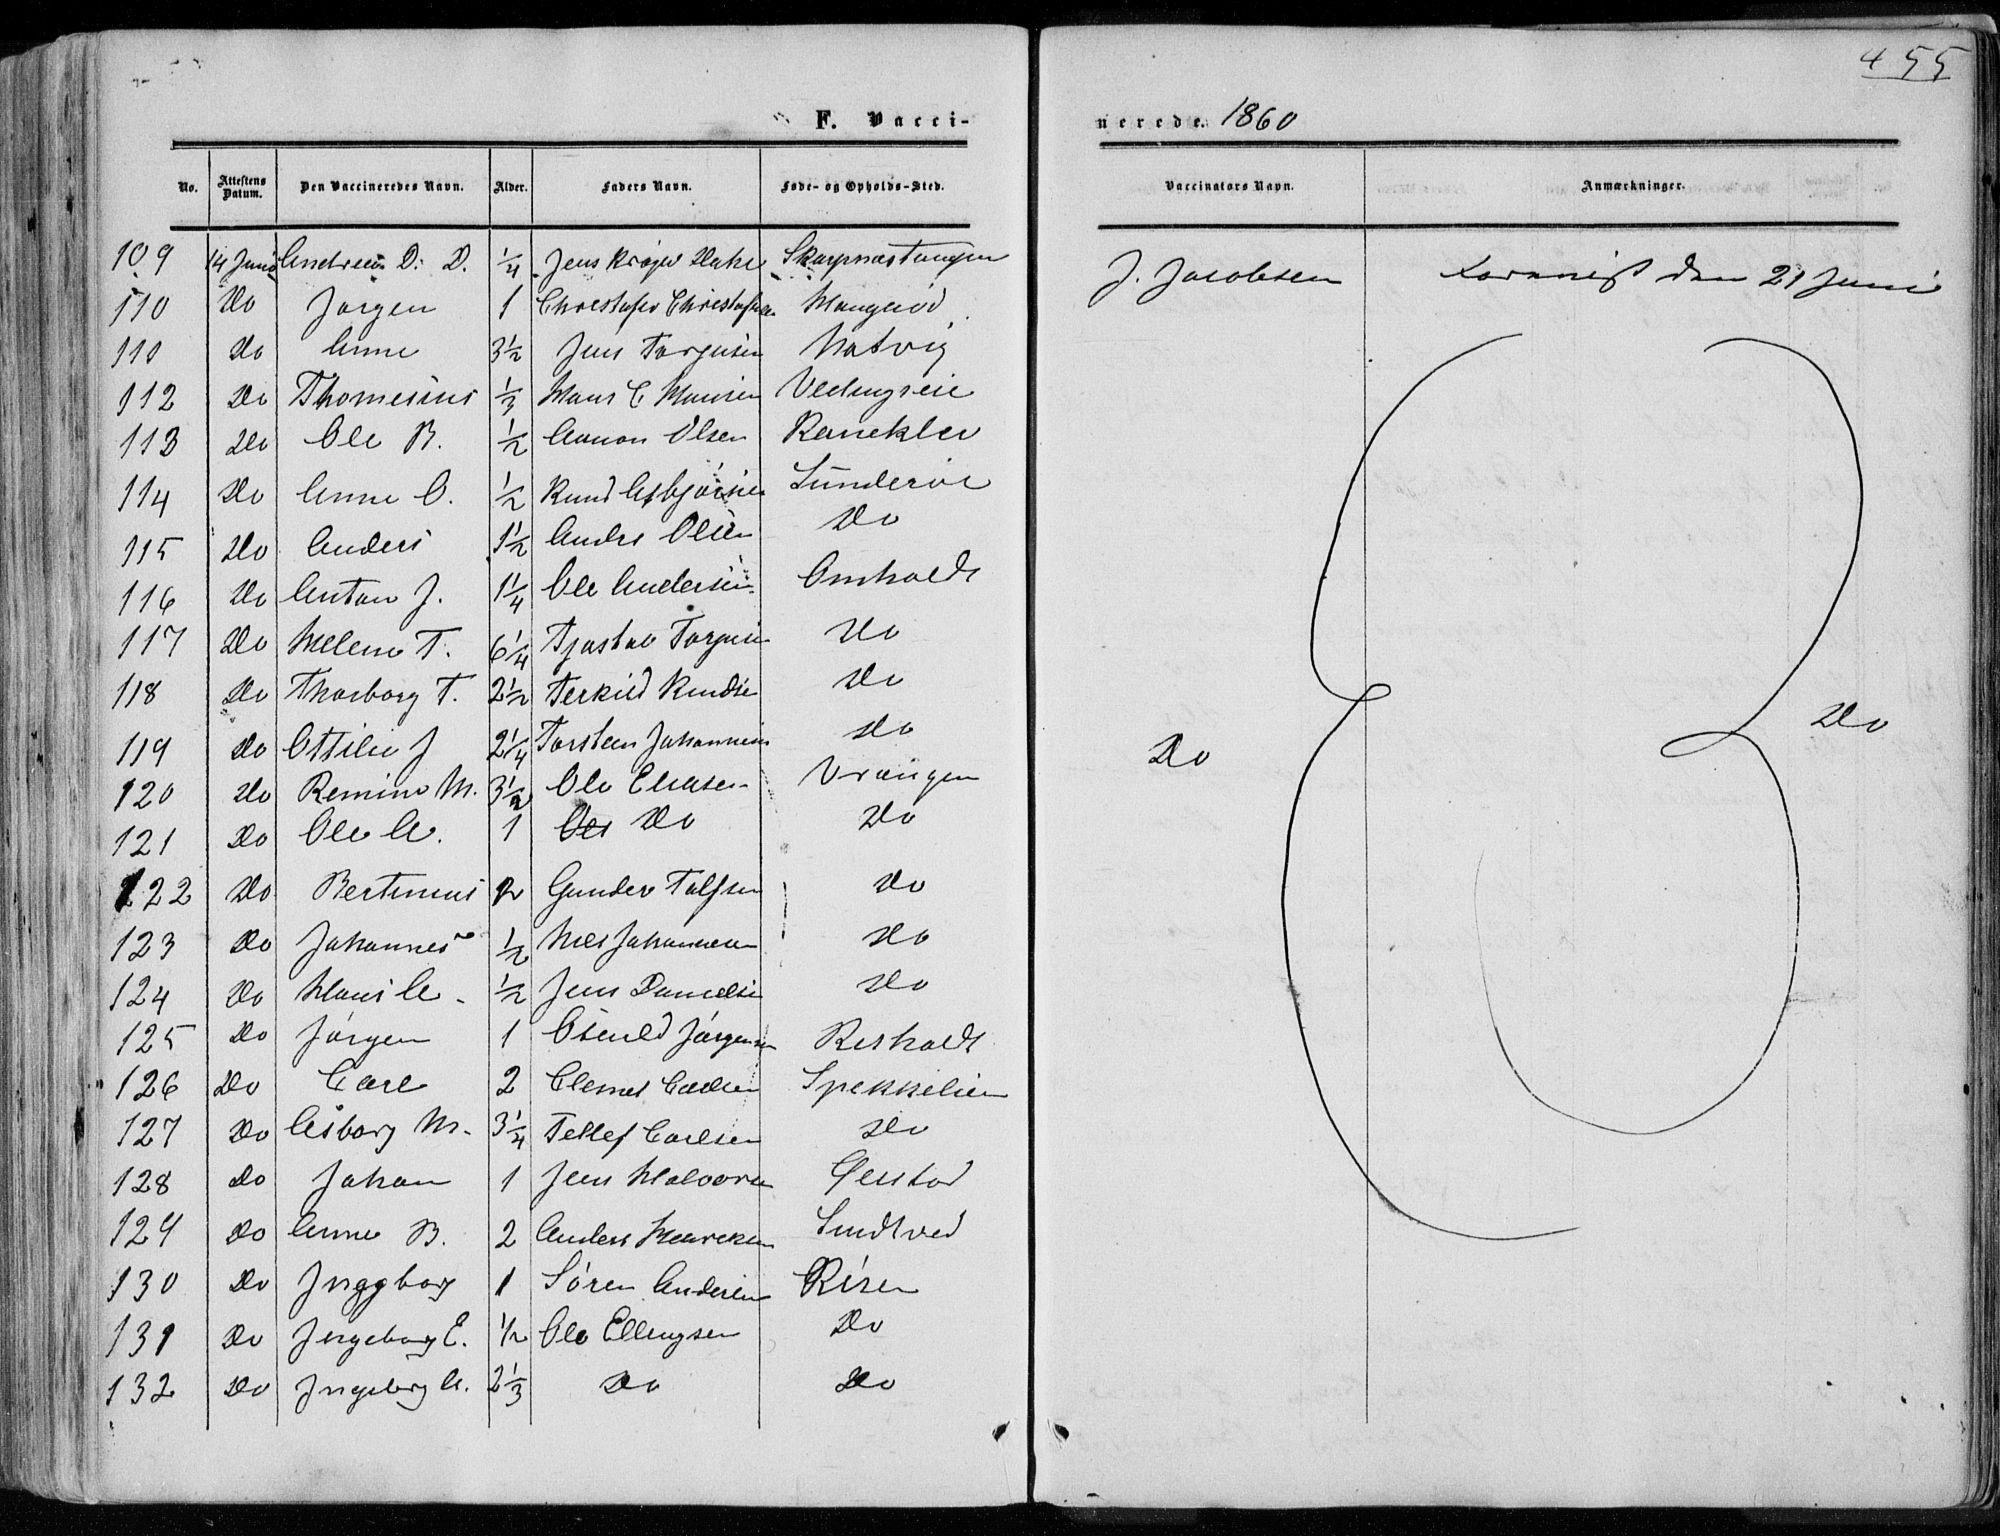 455
F. Vacci-
nerede. 1860
No. Attestens Datum. Den Vaccineredes Navn. Alder. Faders Navn. Føde- og Opholds-Sted. Vaccinators Navn. Anmærkninger.
109 14 Juni Andreas D. D. 1/4 Jens Krøger Dahl Skarpnæstangen J. Jacobsen den 21 Juni
110 Do Jørgen 1 Christofer Christofersen
111 Do Anne 3 1/2 Jens Torjusen Natvig
112 Do Thomesius 1/3 Hans C Hansen
113 Do Ole B. 1/2 Aanon Olsen Raneklev
114 Do Anne O. 1/2 Knud Asbjørnsen Sünderøe
115 Do Anders 1 1/2 Anders Olsen Do
116 Do Anton J. 1 1/4 Ole Andersen Omholdt
117 Do Helene T. 6 1/4 Tjøstov Torjusen Do
118 Do Thorborg T. 2 1/2 Terkild Knudsen Do
119 Do Ottilie J 2 1/4 Torsten Johannesen Do Do Do
120 Do Remine M. 3 1/2 Ole Eliasen Vrængen
121 Do Ole A. 1 Do Do
122 Do Bertinius 2 Gunder Tolfsen Do
123 Do Johannes 1/2 Niels Johannesen Do
124 Do Hans A. 1/2 Jens Danielsen Do
125 Do Jörgen 1 Osuld Jörgensen Risholdt
126 Do Carl 2 Clemet Carlsen Spekkelien
127 Do Asborg M. 3 1/4 Tellef Carlsen Do
128 Do Johan 1 Jens Halvorsen Øestad
129 Do Anne B. 2 Anders Henreksen Smidtved
130 Do Inggborg 1 Sören Andersen Risen
131 Do Ingeborg E. 1/2 Ole Ellingsen Do
132 Do Ingeborg A. 2 1/3 Do Do